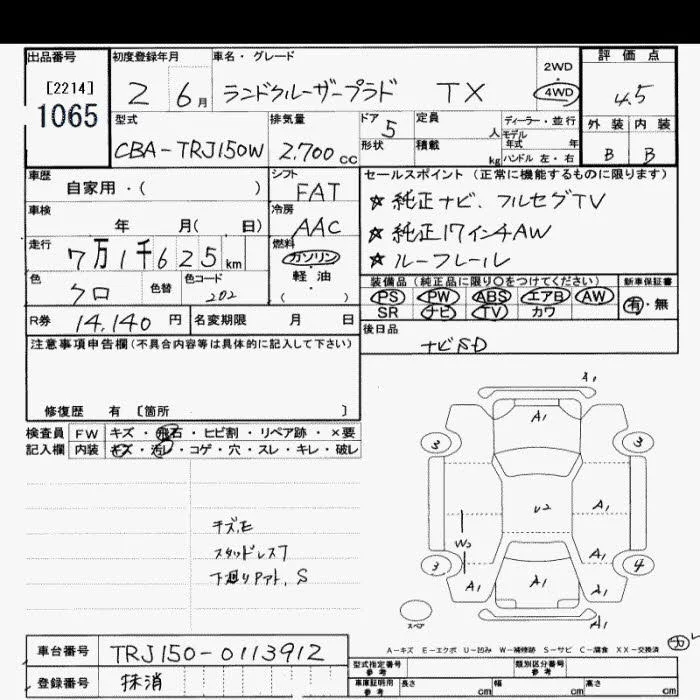 出品番号 初度登録年月 車名・グレード 2WD 評価点
[2214] 2 6月 ランドクルーザープラド TX 4WD 4.5
1065 型式 排気量 ドア 5 定員 人 ディーラー・並行 外装 内装
CBA-TRJ150W 2,700cc 形状 積載 kg モデル年式 年 B B
ハンドル 左・右
車歴 シフト セールスポイント (正常に機能するものに限ります)
自家用・( ) FAT ☆ 純正ナビ、フルセグTV
車検 冷房 ☆ 純正17インチAW
年 月( 日) AAC ☆ ルーフレール
走行 7万1千625km 燃料 ガソリン・軽油・( )
色 クロ 色替 色コード 202
装備品 (純正品に限り○をつけてください) 新車保証書
PS PW ABS エアB AW 有・無
SR ナビ TV カワ
R券 14,140円 名変期限 月 日 後日品
ナビSD
注意事項申告欄(不具合内容等は具体的に記入して下さい)
修復歴 有 〔箇所 〕
検査員 FW キズ・飛石・ヒビ割・リペア跡・×要
記入欄 内装 キズ・汚レ・コゲ・穴・スレ・キレ・破レ
スタッドレス7
A1
A1
3 3
U2 A1
W2
A1
3 4
A1 A1 A1
スペア A1
A-キズ E-エクボ U-凹み W-補修跡 S-サビ C-腐食 XX-交換済
車台番号 TRJ150-0113912 型式指定番号 参考 類別区分番号 参考
登録番号 抹消 車庫証明用 参考 長さ cm 幅 cm 高さ cm